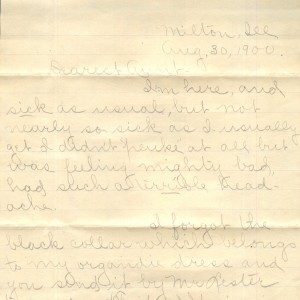 Milton, Del
Aug. 30, 1900.
Dearest
I'm here, and
sick as usual, but not
nearly so sick as I usually
get I didn't puke at all but
was feeling mighty bad,
had such a terrible head-
ache.
I forgot the
black collar which belongs
to my organdie dress and
you send it by Mr Lester